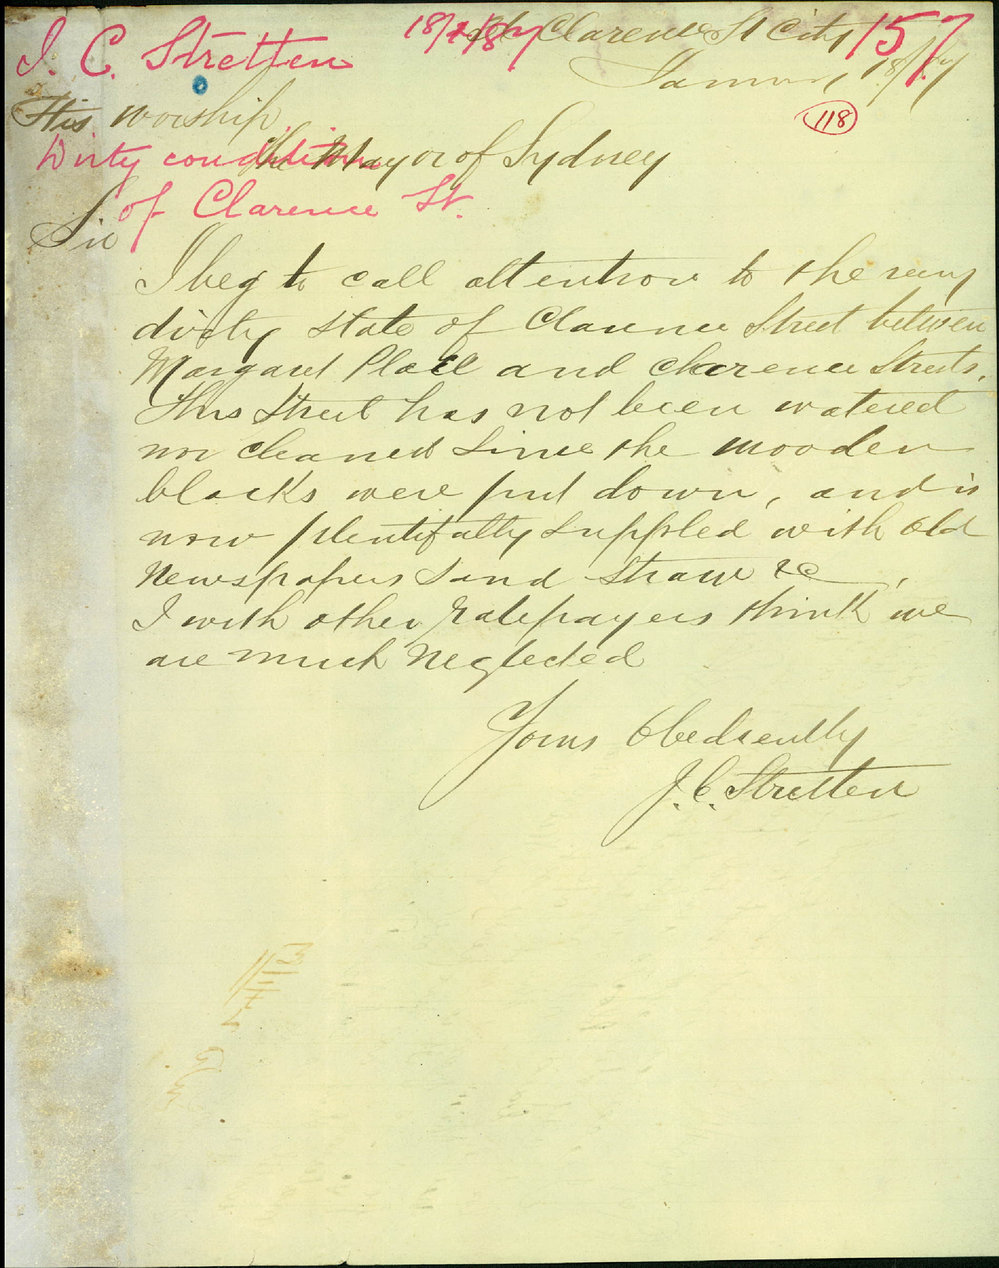 J. C. Stretten 18/1/87 157
Clarence St City
January 18/87
118
His worship
The Mayor of Sydney
Dirty condition
of Clarence St.
Sir
I beg to call attention to the very
dirty state of Clarence Street between
Margaret Place and Clarence Streets.
This Street has not been watered
nor cleaned since the wooden
blocks were put down, and is
now plentifully suppled with old
Newspapers sand straw &c,
I with other ratepayers think we
are much neglected
Yours Obediently
J. C. Stretten